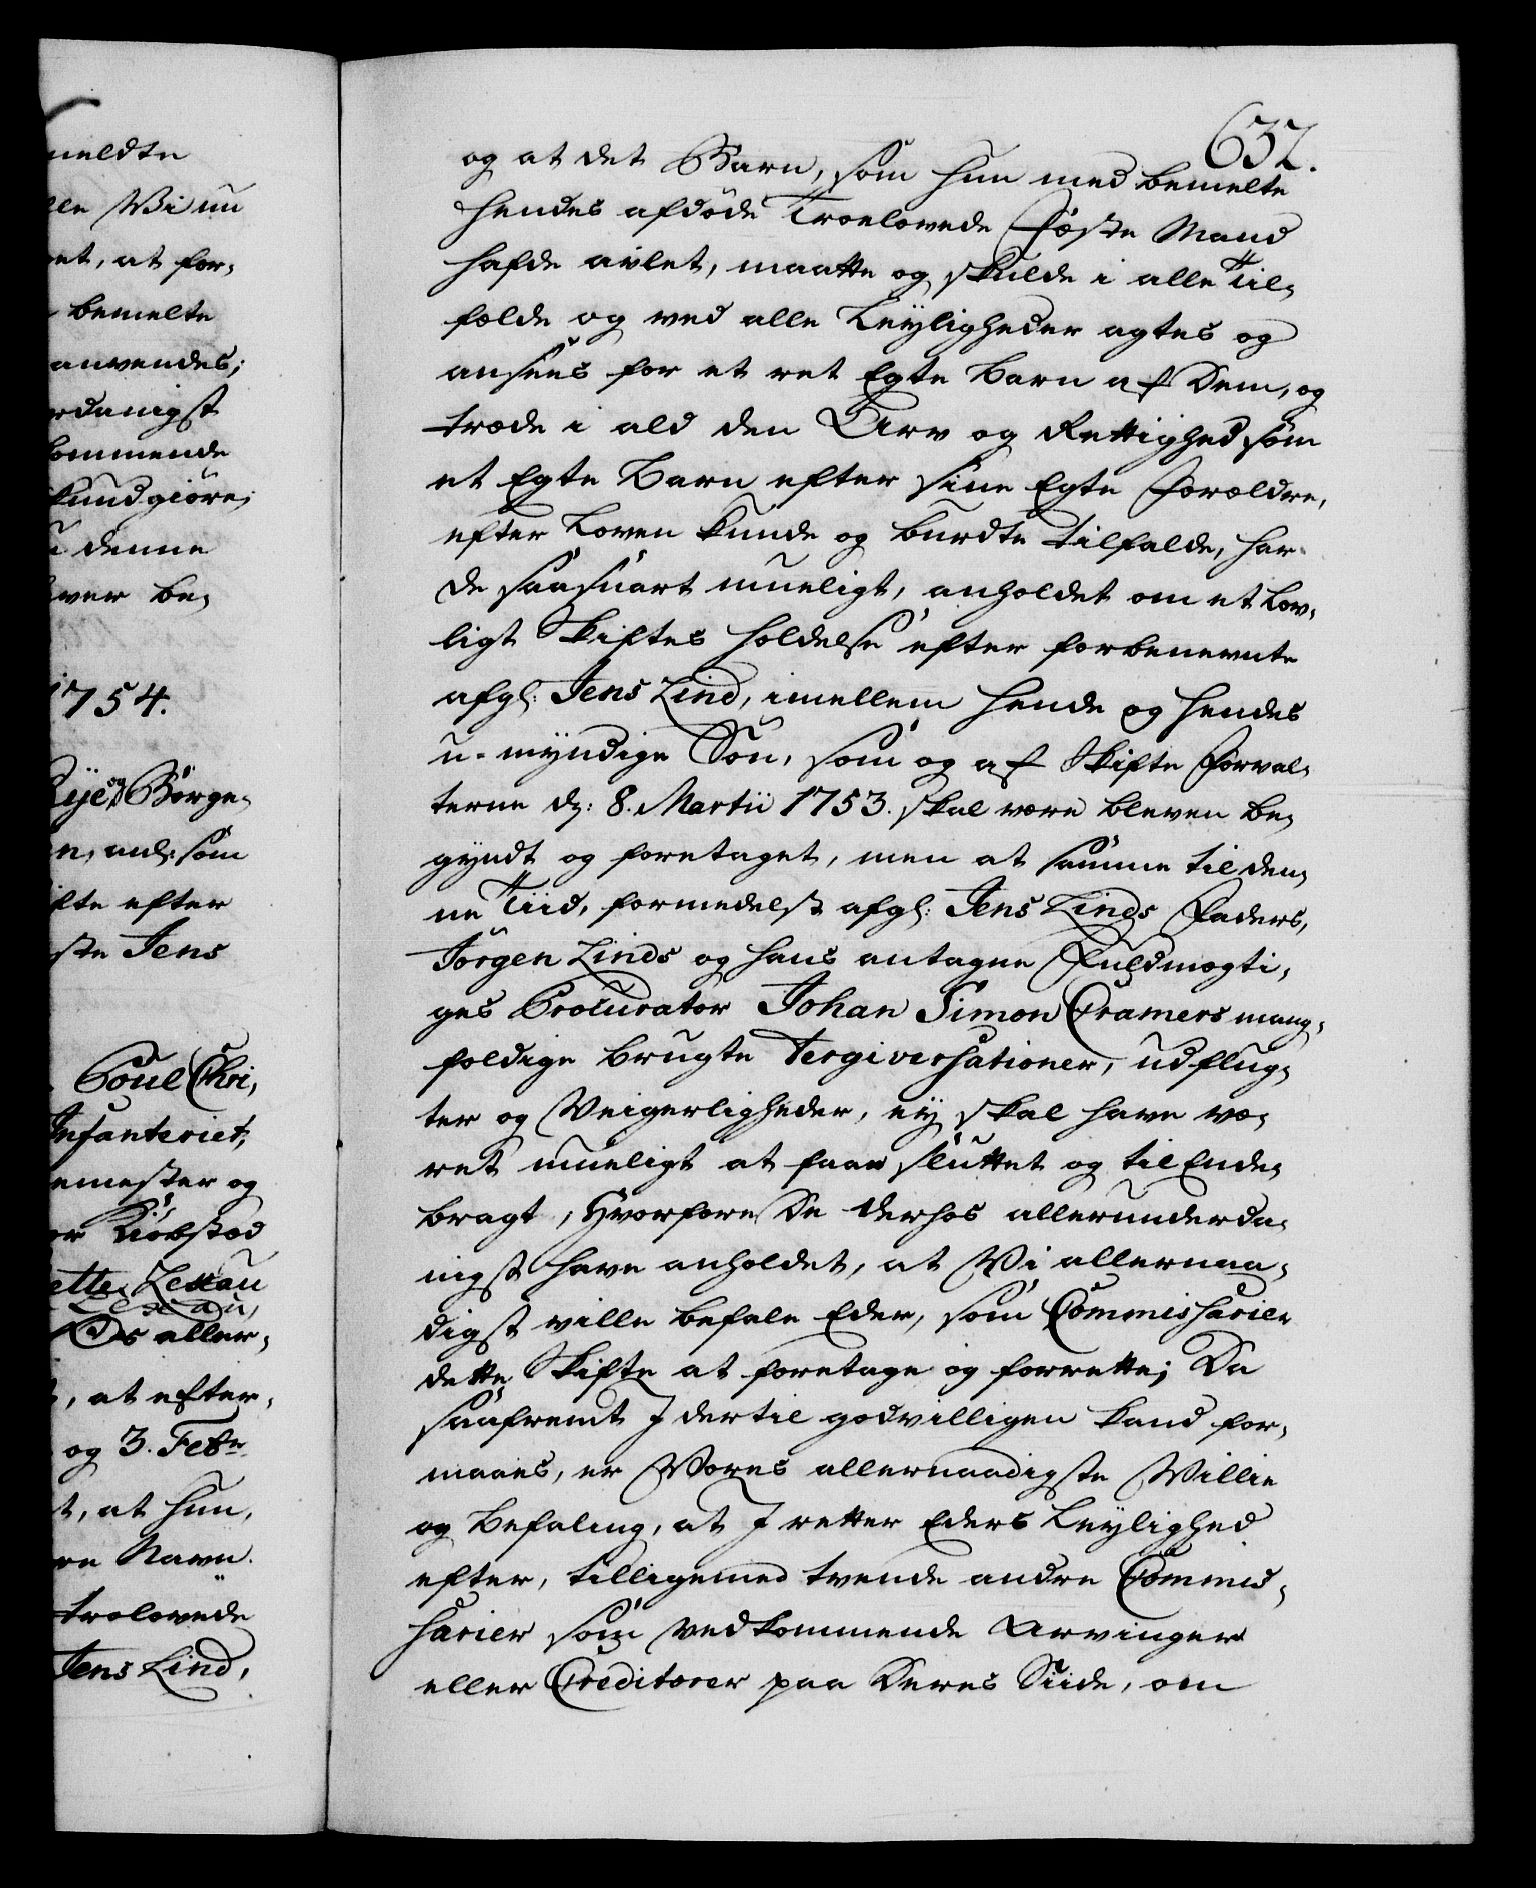 meldte
lle Wi nu
et, at for-
bemelte
anvendes;
rdanigst
kommende
kundgiøre;
denne
over be-
1754.
Rÿe og Børge-
n, anl: som
ifte efter
ste Jens
Poul Chri-
Infanteriet,
emester og
or Kiøbstad
ette Zettau
Os aller-
, at efter-
og 3. Febr
t, at hun,
re Navn
trolovede
Jens Lind,
632.
og at det Barn, som hun med bemelte
hendes afdøde Troelovede Fæste Mand
hafde avlet, maatte og skulde i alle Til-
fælde og ved alle Leyligheder agtes og
ansees for et ret Egte Barn af Dem, og
træde i ald den Arv og Rettighed, som
et Egte Barn efter sine Egte Forældre,
efter Loven kunde og burdte tilfalde, har
De saasnart mueligt, anholdet om et Lov-
ligt Skiftes holdelse efter forbenevnte
afgl: Jens Lind, imellem hende og hendes
u-myndige Søn, som og af Skifte Forval-
terne d: 8. Martii 1753. skal være bleven be-
gyndt og foretaget, men at samme til den-
ne Tiid, formedelst afgl: Jens Linds Faders,
Jørgen Linds og hans antagne Fuldmægti-
ges Procurator Johan Simon Cramers mang-
foldige brugte Tergiversationer, udflug-
ter og Veigerligheder, ey skal have væ-
ret mueligt at faae sluttet og til Ende-
bragt, Hvorfore De derhos allerunderda-
nigst have anholdet, at Vi allernaa-
digst ville befale Eder, som Commissarier
dette Skifte at foretage og forrette; Da
saafremt I dertil godvilligen kand for-
maaes, er Vores allernaadigste Villie
og Befaling, at I retter Eders Leylighed
efter, tilligemed tvende andre Commis-
sarier som vedkommende Arvinger
eller Creditorer paa Deres Siide, om